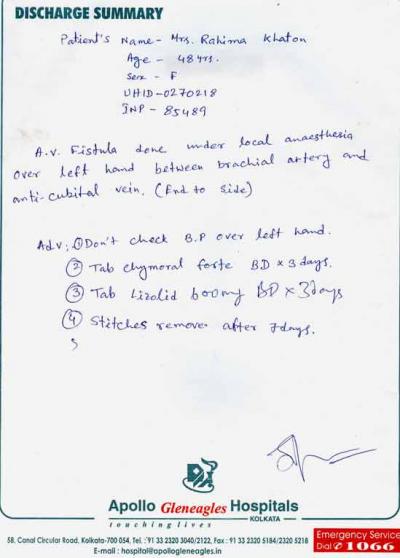 DISCHARGE SUMMARY
Patient's Name - Mrs. Rahima Khaton
Age - 48 yrs.
Sex - F
UHID - 0270218
INP - 85489
A.V. Fistula done under local anaesthesia
over left hand between brachial artery and
anti-cubital vein. (End to Side)
Adv: ① Don't check B.P over left hand.
② Tab chymoral forte BD x 3 days.
③ Tab Lizolid 600mg BD x 3 days
④ Stitches remove after 7 days.
Apollo Gleneagles Hospitals
KOLKATA
touching lives
58, Canal Circular Road, Kolkata-700 054, Tel. : 91 33 2320 3040/2122, Fax : 91 33 2320 5184/2320 5218
E-mail : hospital@apollogleneagles.in
Emergency Service
Dial ✆ 1066